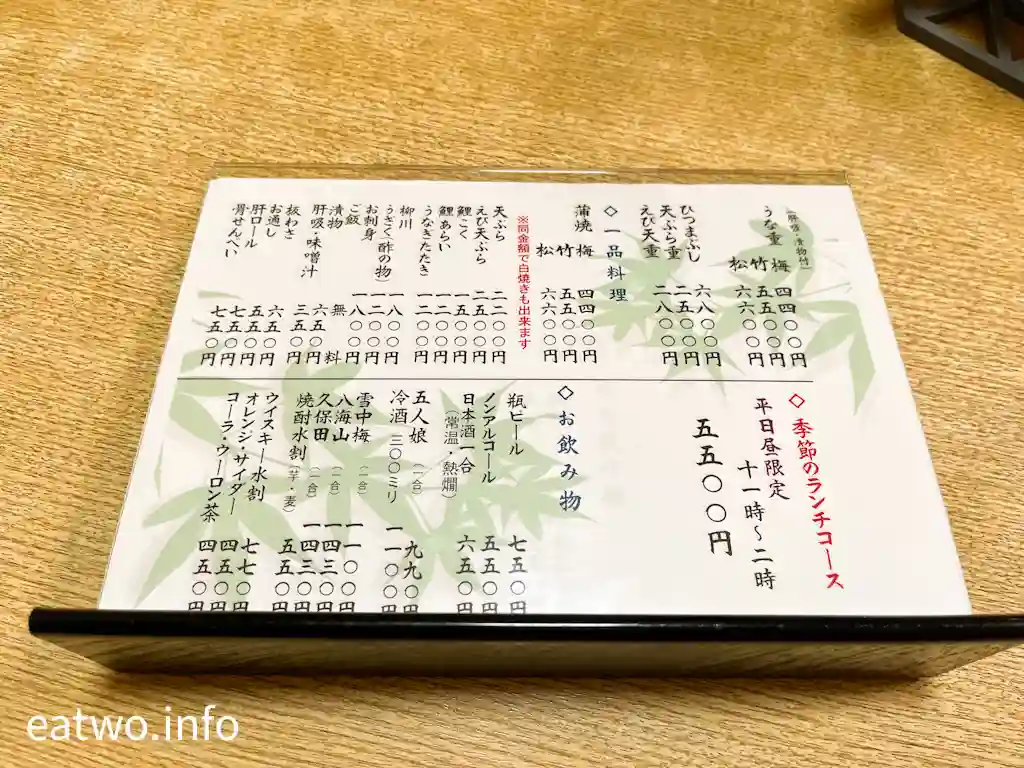 (肝吸・漬物付)
うな重 梅 四四〇〇円
竹 五五〇〇円
松 六六〇〇円
ひつまぶし 六八〇〇円
天ぷら重 二五〇〇円
えび天重 二八〇〇円
◇一品料理
蒲焼 梅 四四〇〇円
竹 五五〇〇円
松 六六〇〇円
※同金額で白焼きも出来ます
天ぷら 二二〇〇円
えび天ぷら 二五〇〇円
鯉こく 一五〇〇円
鯉あらい 一二〇〇円
うなぎたたき 一二〇〇円
柳川 一八〇〇円
うざく(酢の物) 一二〇〇円
お刺身 一八〇〇円
ご飯 無料
漬物 六五〇円
肝吸・味噌汁 三五〇円
板わさ 六五〇円
お通し 五五〇円
肝ロール 七五〇円
骨せんべい 七五〇円
◇季節のランチコース
平日昼限定
十一時～二時
五五〇〇円
◇お飲み物
瓶ビール 七五〇円
ノンアルコール 五五〇円
日本酒一合 六五〇円
(常温・熱燗)
五人娘(一合) 九九〇円
冷酒 三〇〇ミリ 一一〇〇円
雪中梅(一合) 一一〇〇円
八海山(一合) 一四三〇円
久保田(一合) 一四三〇円
焼酎水割(芋・麦) 五五〇円
ウイスキー水割 七七〇円
オレンジ・サイダー 四五〇円
コーラ・ウーロン茶 四五〇円
eatwo.info